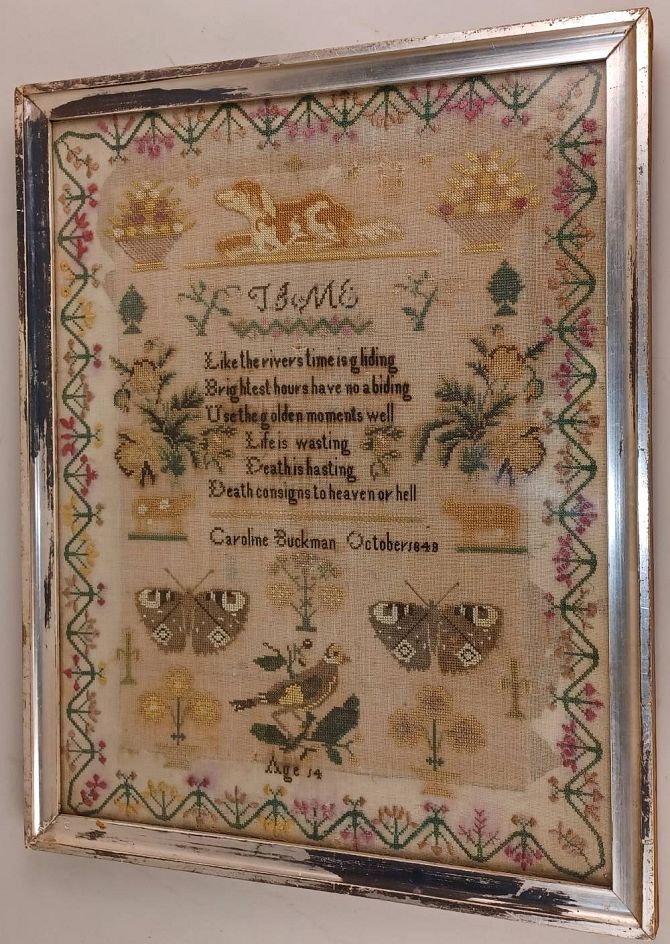 TIME
Like the rivers time is gliding
Brightest hours have no abiding
Use the golden moments well
Life is wasting
Death is hasting
Death consigns to heaven or hell
Caroline Buckman October 1848
Age 14